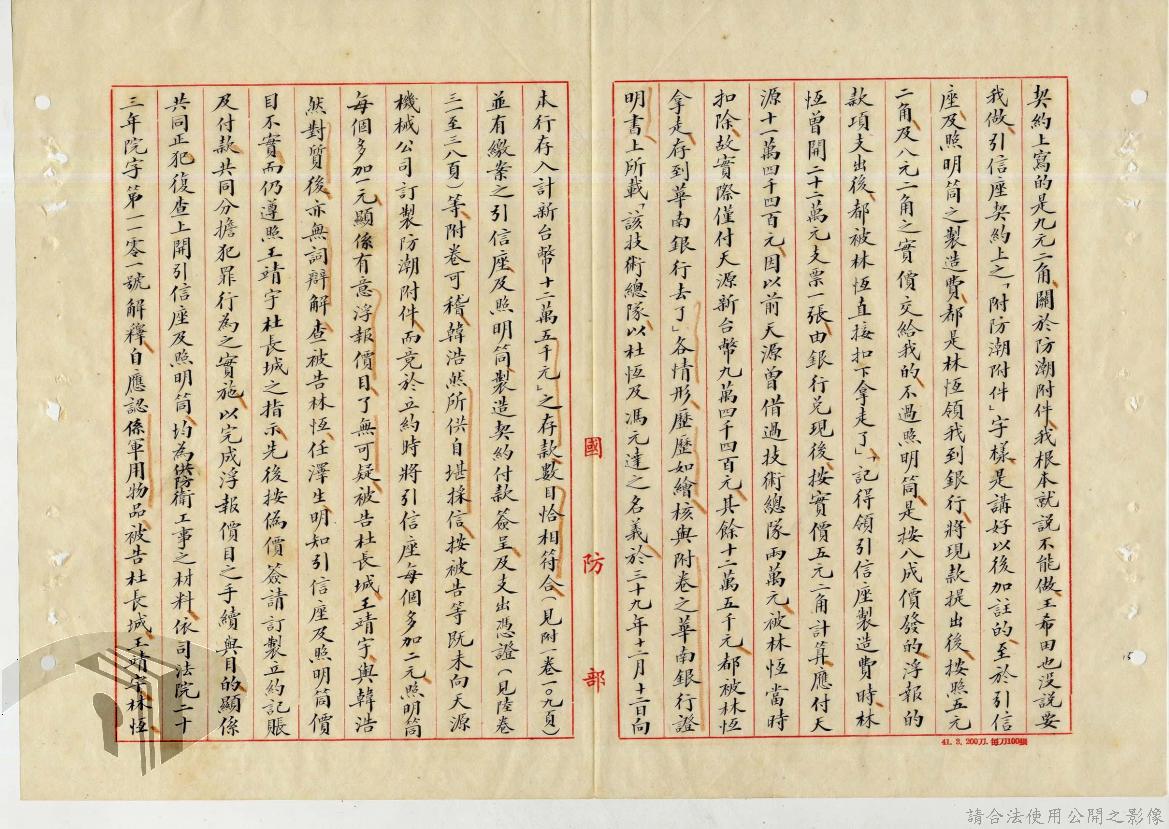 契約上寫的是九元二角、關於防潮附件、我根本就說不能做、王希田也没說要
我做引信座契約上之「附防潮附件」字樣、是講好以後加註的、至於引信
座及照明筒之製造費都是林恆領我到銀行將現款提出後、按照五元
二角及八元二角之實價交給我的、不過照明筒是按八成價發的、浮報的
款項支出後、都被林恆直接扣下拿走了」、「記得領引信座製造費時、林
恆曾開二十二萬元支票一張、由銀行兑現後、按實價五元二角計算、應付天
源十一萬四千四百元、因以前天源曾借過技術總隊兩萬元、被林恆當時
扣除、故實際僅付天源新台幣九萬四千四百元、其餘十二萬五千元、都被林恆
拿走存到華南銀行去了」各情形歷歷如繪、核與附卷之華南銀行證
明書上所載「該技術總隊以杜恆及馮元達之名義於三十九年十二月十三日向
國防部
41. 3. 200刀. 每刀100張
本行存入計新台幣十二萬五千元」之存款數目恰相符合（見附一卷一〇九頁）
並有繳案之引信座及照明筒製造契約付款簽呈及支出憑證（見陸卷
三至三八頁）等附卷可稽、韓浩然所供自堪採信、按被告等既未向天源
機械公司訂製防潮附件、而竟於立約時將引信座每個多加二元、照明筒
每個多加一元、顯係有意浮報價目了無可疑、被告杜長城王靖宇與韓浩
然對質後亦無詞辯解、查被告林恆任澤生明知引信座及照明筒價
目不實、而仍遵照王靖宇杜長城之指示、先後按偽價簽請訂製立約記賬
及付款、共同分擔犯罪行為之實施、以完成浮報價目之手續與目的、顯係
共同正犯、復查上開引信座及照明筒、均為供防衛工事之材料、依司法院二十
三年院字第一一零一號解釋、自應認係軍用物品、被告杜長城王靖宇林恆
請合法使用公開之影像